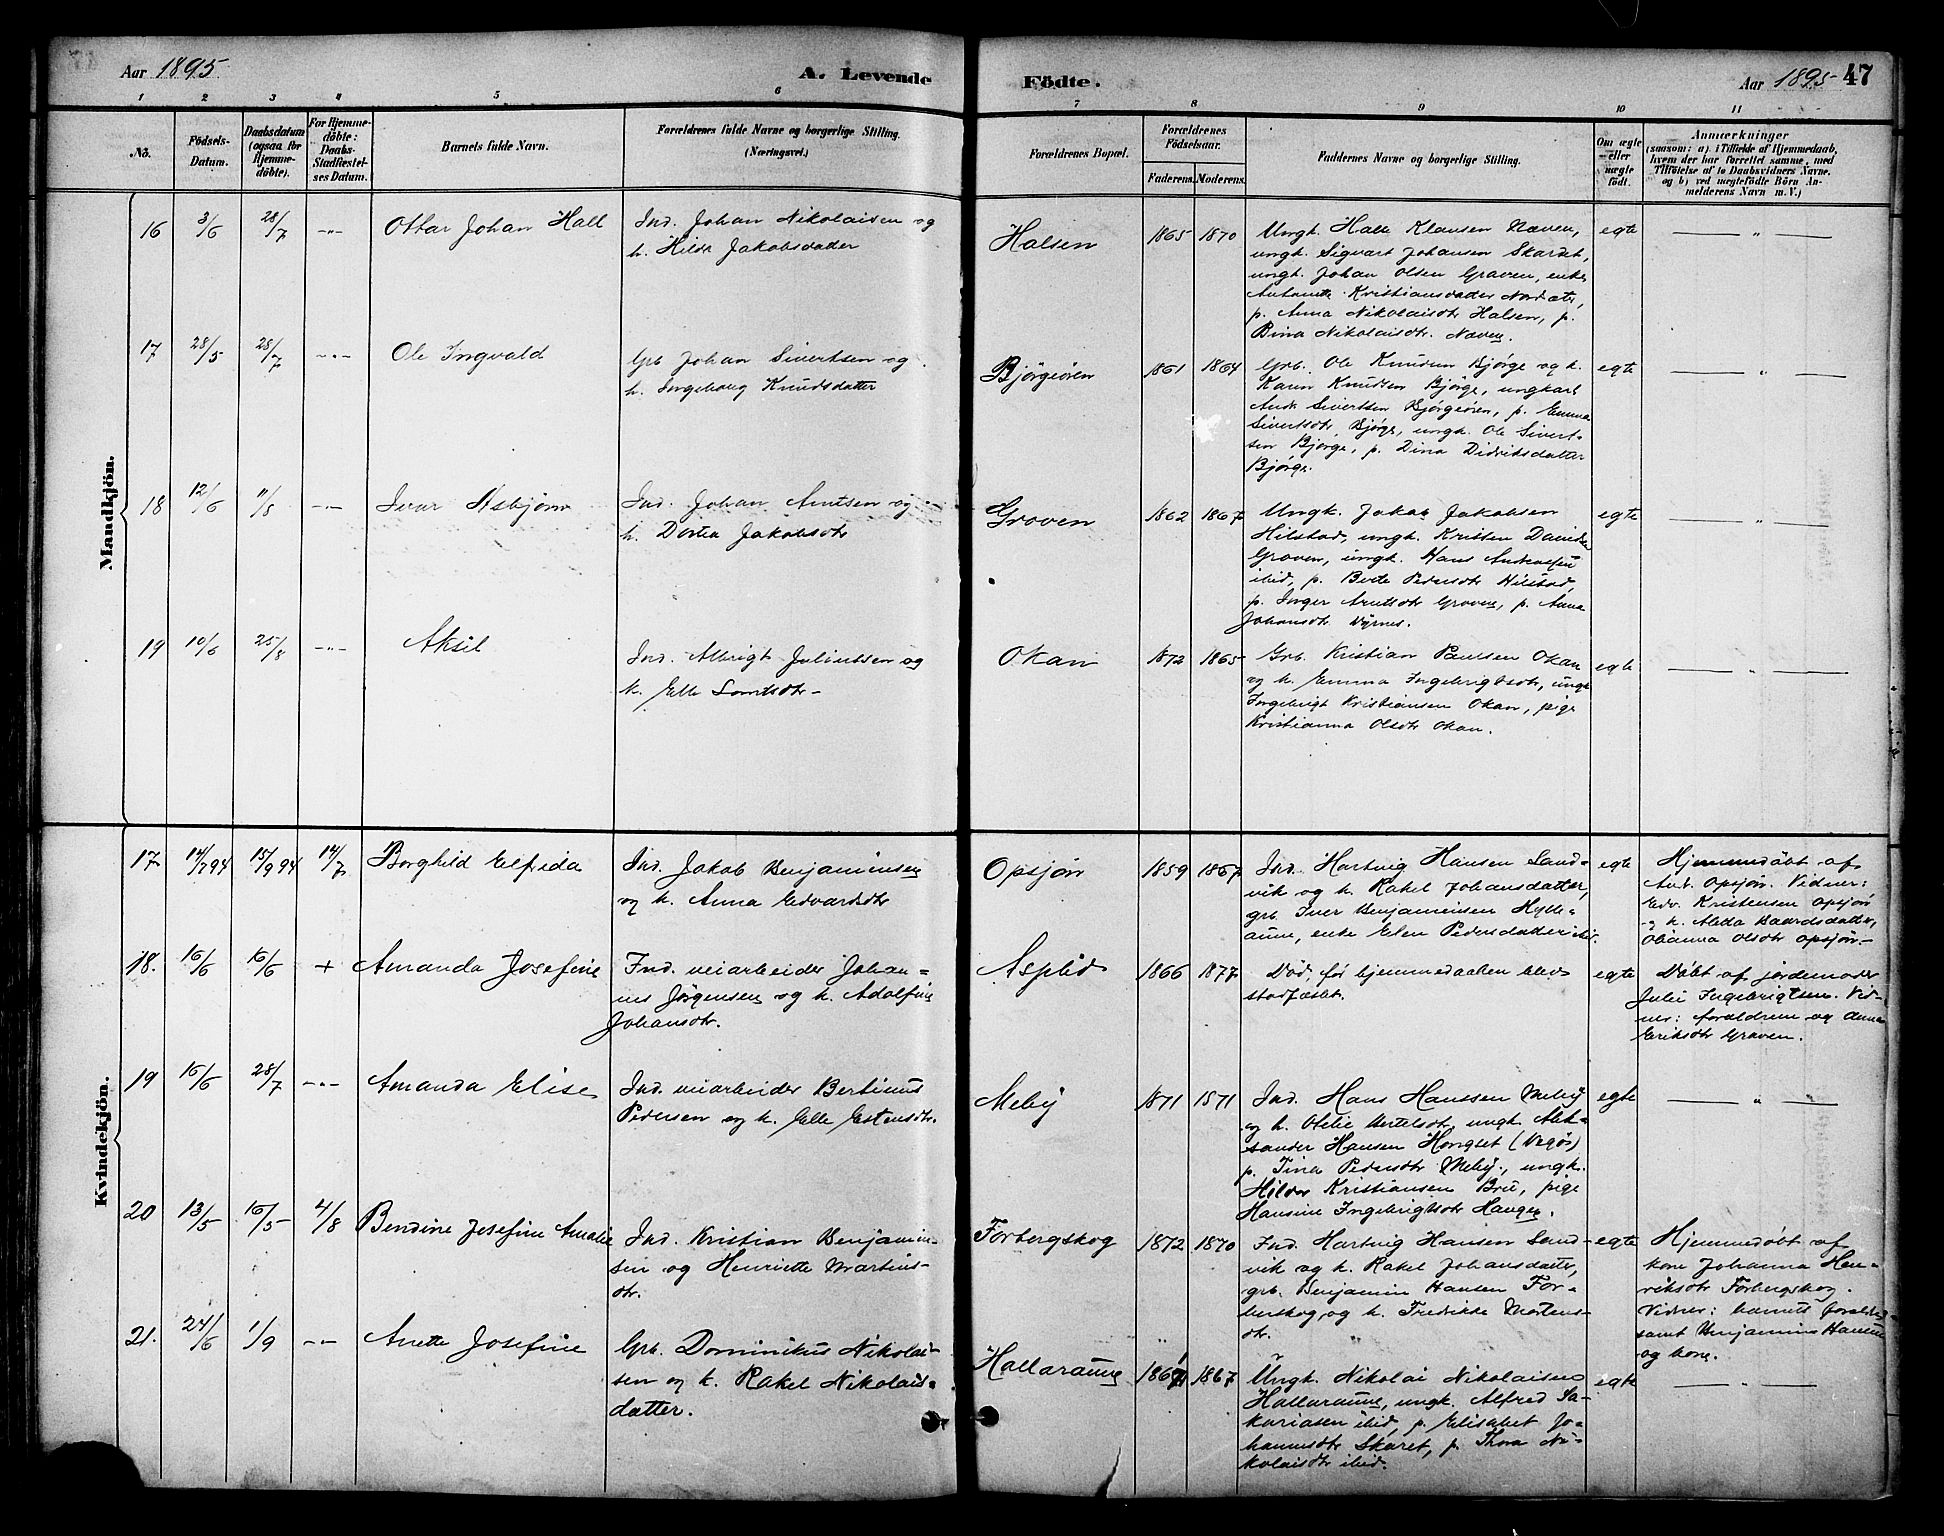 Aar 1895
A. Levende
Födte.
Aar 1895 47
1 2 3 4 5 6 7 8 9 10 11
No.
Födsels-
Datum.
Daabsdatum
(ogsaa for
Hjemme-
döbte).
For Hjemme-
döbte:
Daabs-
Stadfæstel-
ses Datum.
Barnets fulde Navn.
Forældrenes fulde Navne og borgerlige Stilling.
(Næringsvei.)
Forældrenes Bopæl.
Forældrenes
Födselsaar.
Faderens. Moderens.
Faddernes Navne og borgerlige Stilling.
Om ægte
eller
uægte
födt.
Anmærkninger
(saasom: a) i Tilfælde af Hjemmedaab,
hvem der har forrettet samme, med
Tilföielse af to Daabsvidners Navne.
og b) ved uægtefödte Börn An-
melderens Navn m. V.)
Mandkjön.
16 3/6 28/7 -"- Ottar Johan Hall
Ind. Johan Nikolaisen og
h. Hilda Jakobsdatter
Halsen 1865 1870
Ungk. Halle Klausen Næven,
ungk. Sigvart Johansen Skardet,
ungk. Johan Olsen Graven, enke
Kristiansdatter
p. Anna Nikolaisdtr Halsen, p.
Bina Nikolaisdtr. Næven.
egte — " —
17 28/5 28/7 -"- Ole Ingvald
Grb. Johan Sivertsen og
h. Ingeborg Knudsdatter
Bjørgeøren 1861 1864
Grb. Ole Knudsen Bjørge og h.
Karen Knudsen Bjørge, ungkarl
Sivertsen Bjørgeøren, p. Emma
Sivertsdtr Bjørge, ungk. Ole Sivert-
sen Bjørge, p. Dina Didriksdatter
Bjørge.
egte — " —
18 12/6 11/8 -"- Ivar Asbjørn
Ind. Johan Arntsen og
h. Dortea Jakobsdtr
Groven 1862 1867
Ungk. Jakob Jakobsen
Hilstad, ungk. Kristen
Groven, ungk. Hans
ibid, p. Berte Pedersdtr Hilstad,
p. Inger Arntsdtr Groven, p. Anna
Johansdtr Dyrnes.
egte — " —
19 10/6 25/8 -"- Aksil
Ind. Albrigt Juliussen og
h. Elle
Okan 1872 1865
Grb. Kristian Paulsen Okan
og h. Emma Ingebrigtsdtr, ungk
Ingebrigt Kristiansen Okan, pige
Kristianna Olsdtr Okan.
egte — " —
Kvindekjön.
17 14/7 94 15/9 94 14/7 Borghild Elfrida
Ind. Jakob Benjaminsen
og h. Anna Edvardsdtr
Opsjøn 1859 1867
Ind. Hartvig Hansen Sand-
vik og h. Rakel Johansdatter,
grb. Iver Benjaminsen Hylle-
aune, enke Elen Pedersdatter ibid.
egte
Hjemmedøbt af
Ant. Opsjøn. Vidner:
Edv. Kristensen Opsjøn
og h. Aleda Baardsdatter,
Olianna Olsdtr Opsjøn.-
18. 16/6 16/6 + Amanda Josefine
Ind. veiarbeider Johan-
nes Jørgensen og h. Adolfine
Johansdtr.
Asplid 1866 1877
Død, før hjemmedaaben blev
stadfæstet.
egte
Døbt af jordemoder
Julie Ingebrigtsen. Vid-
ner: forældrene og Anna
Eriksdtr Graven.
19 16/6 28/7 -"- Amanda Elise
Ind. veiarbeider Bertinus
Pedersen og h. Elle Estensdtr.
Meby 1871 1871
Ind. Hans Hanssen Meby
og h. Otelie Bertelsdtr, ungk. Alek-
sander Hansen Hongset (Vegø)
p. Tina Pedersdtr Meby, ungk.
Hildor Kristiansen Bru, pige
Hansine Ingebrigtsdtr Haugen.
egte — " —
20 13/5 16/5 4/8 Bendine Josefine Amalie
Ind. Kristian Benjamin-
sen og Henriette Martins-
dtr.
Forbergskog 1872 1870
Ind. Hartvig Hansen Sand-
vik og h. Rakel Johansdatter,
grb. Benjamin Hansen For-
berskog, og h. Fredrikke Mortens-
dtr.
egte
Hjemmedøbt af
kone Johanna Hen-
riksdtr Forbergskog.
Vidner: barnets forældre
samt Benjamin Hansen
og kone.
21. 24/6 1/9 -"- Anette Josefine
Grb. Dominikus Nikolai-
sen og h. Rakel Nikolais-
datter.
Hallaraune 1867
Ungk. Nikolai Nikolaisen
Hallaraune, ungk. Alfred Sa-
kariasen ibid, p. Elisabet Jo-
hannesdtr Skaret, p. Thora Ni-
kolaisdtr ibid.
egte — " —